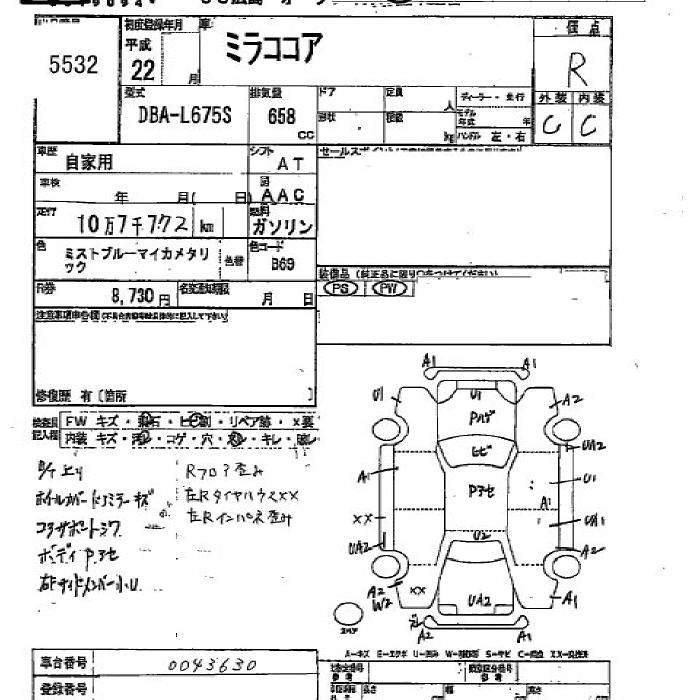 初度登録年月 車
5532 平成 22 月 ミラココア
評価点 R
型式 DBA-L675S
排気量 658 CC
ドア 定員 人
形状 積載 kg
ディーラー・並行
モデル年式 年
ハンドル 左・右
外装 内装
C C
車歴 自家用
シフト AT
セールスポイント
車検 年 月( 日)
AAC
走行 10万7千772 km
燃料 ガソリン
色 ミストブルーマイカメタリック
色替
色コード B69
装備品 (純正品に限り○をつけてください)
R券 8,730円 名変期限 月 日
PS PW
注意事項申告欄
修復歴 有〔箇所 〕
検査員記入欄
FW キズ・飛石・ヒビ割・リペア跡・×要
内装 キズ・汚レ・コゲ・穴・スレ・キレ・
ホイールカバー ドアミラー キズ
コアサポートシワ
ボディ P.アセ
Rフロア歪み
左RタイヤハウスXX
左Rインパネ歪み
A1 A1
U1 U1 A2
Pハゲ
ヒビ
UA2
A1 Pアセ U1
A1
XX UA1
UA2 U2 A2
A2 XX
W2 UA2 A1
A2 A1
スペア
A-キズ E-エクボ U-凹み W-補修跡 S-サビ C-腐食 XX-交換済
車台番号 0043630
登録番号
長さ 幅 高さ